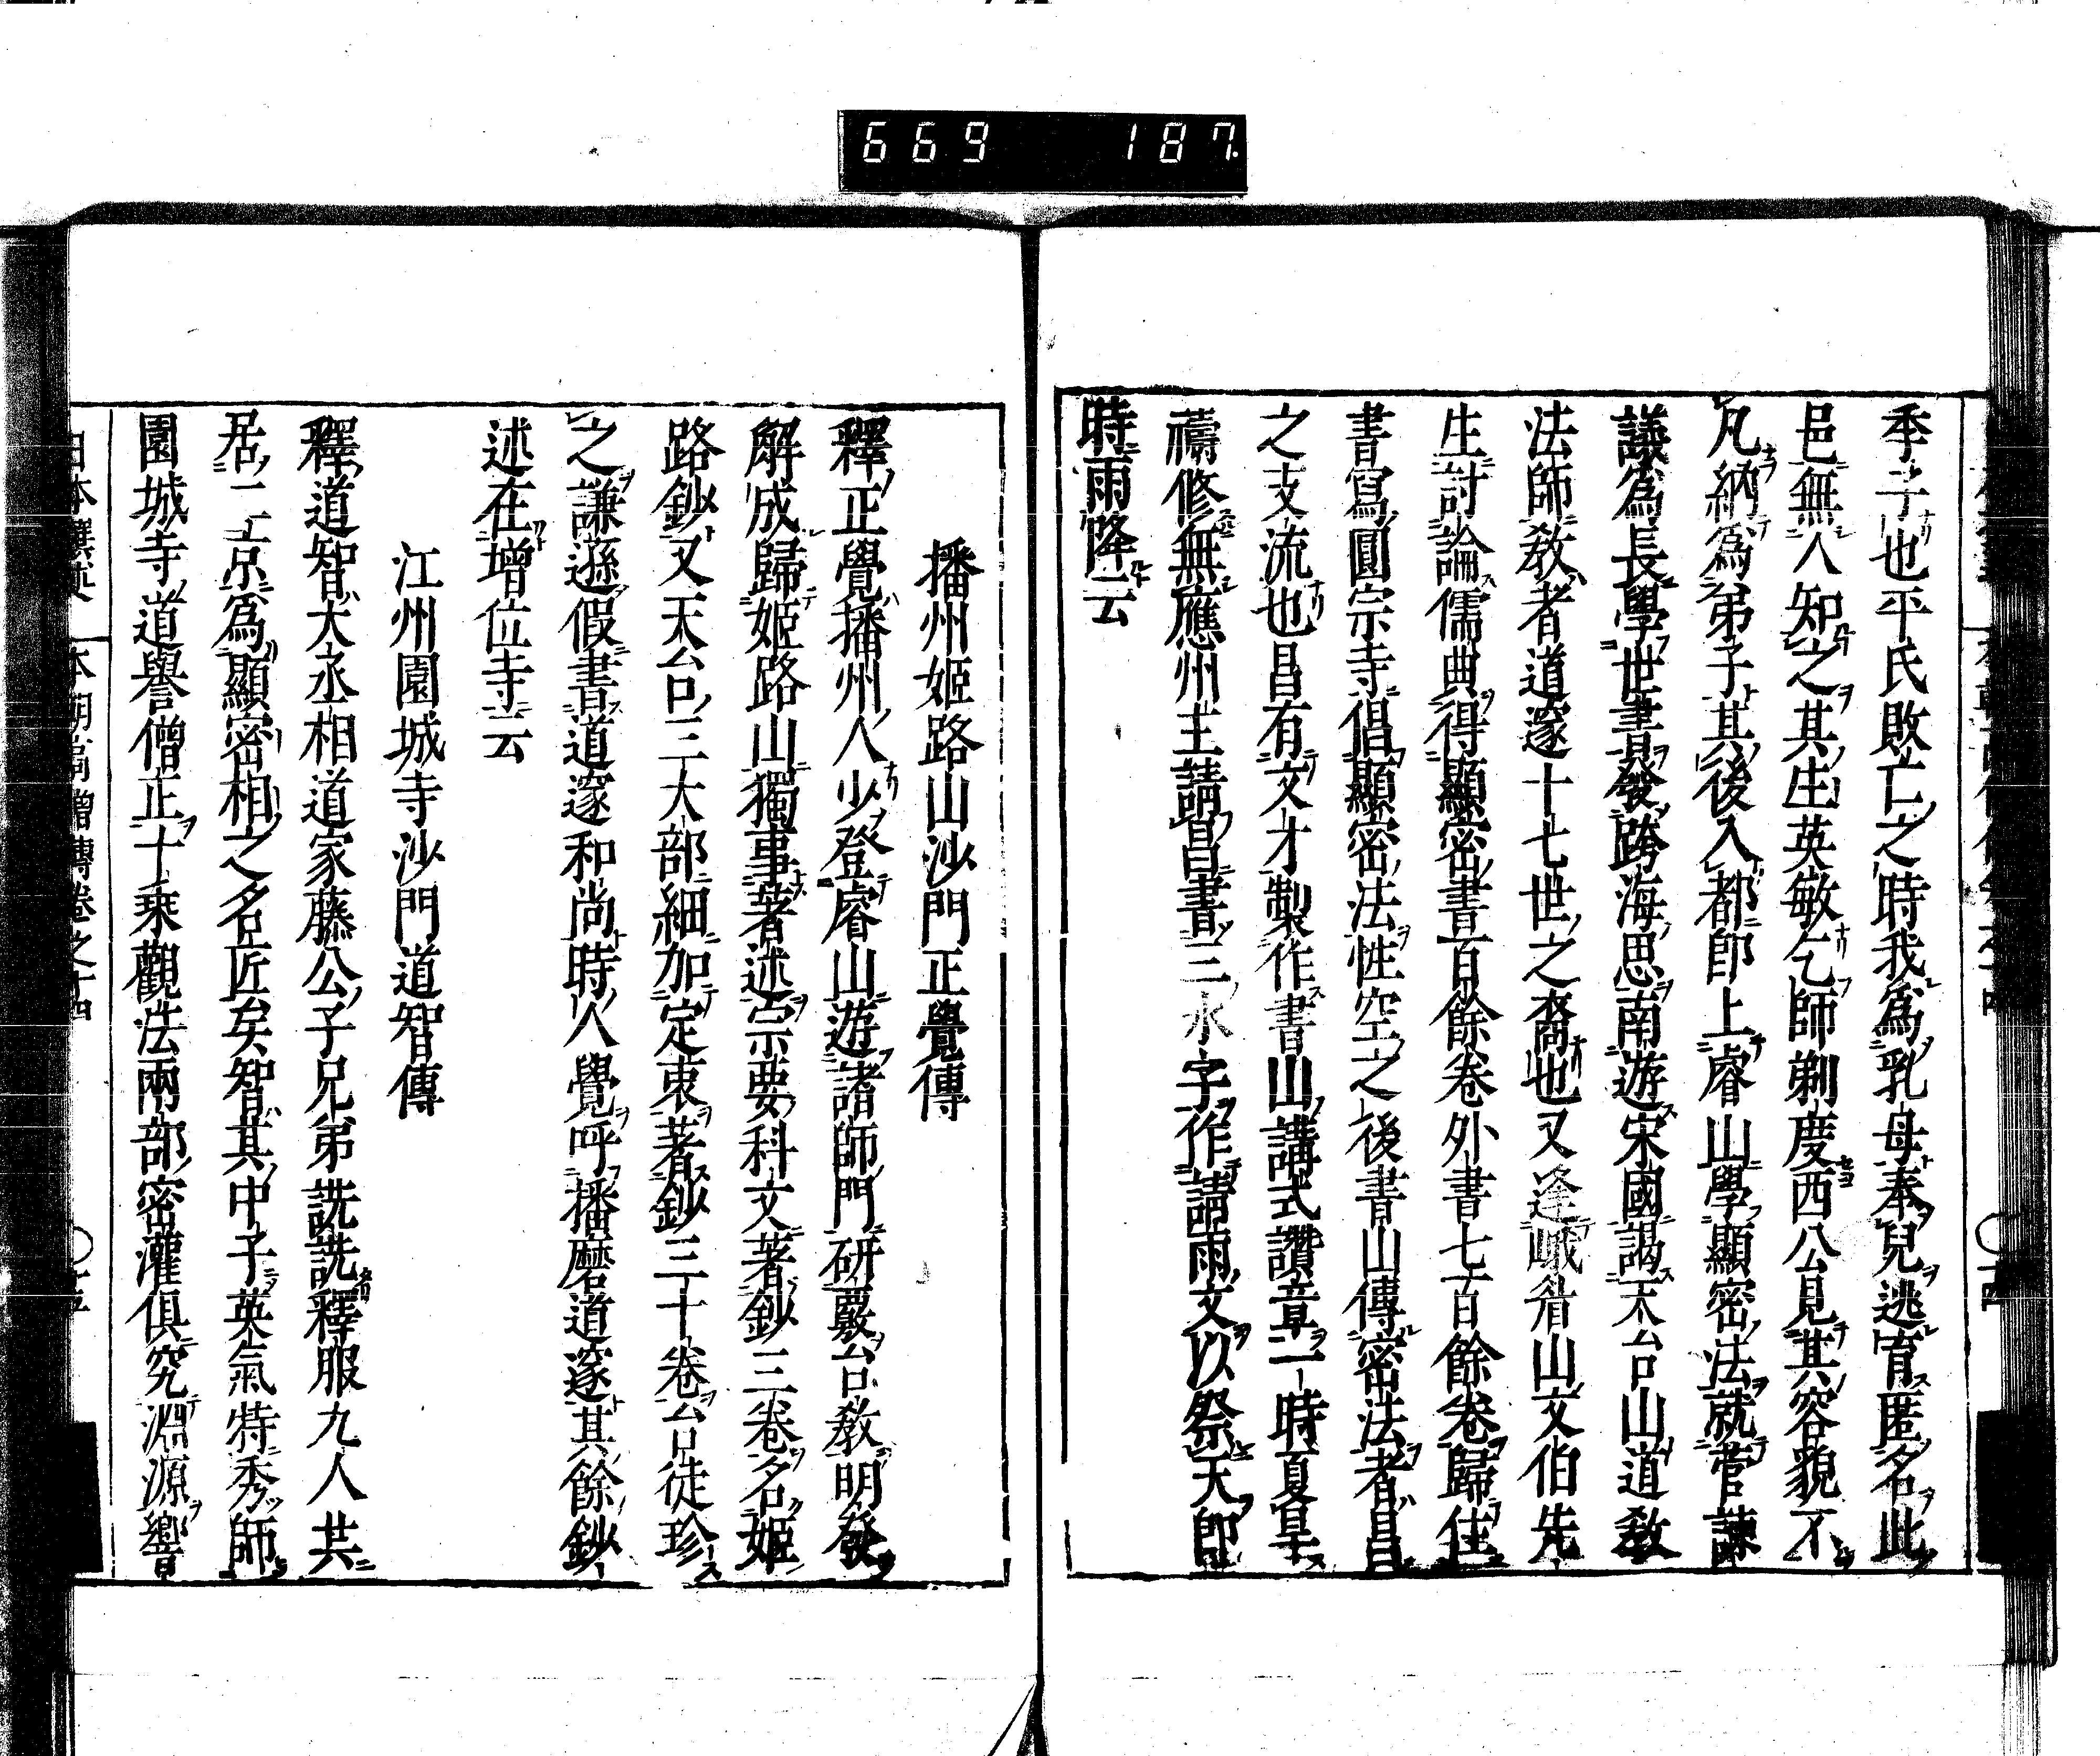 669 187.
季子也平氏敗亡之時我爲乳母奉兒逃育匿名此
邑無人知之其生英敏乞師剃度西公見其容貌不
凡納爲弟子其後入都卽上睿山學顯密法就菅諫
議爲長學世書發跨海思南遊宋國謁天台山道教
法師教者道邃十七世之裔也又逢峨眉山文伯先
生討論儒典得顯密書百餘卷外書七百餘卷歸住
書寫圓宗寺倡顯密法性空之後書山傳密法者昌
之支流也昌有文才製作書山講式讚章一時夏旱
禱修無應州主請昌書三水字作請雨文以祭天卽
時雨降云
播州姬路山沙門正覺傳
釋正覺播州人少登睿山遊諸師門研覈台教明發
解成歸姬路山獨事著述宗要科文著鈔三卷名姬
路鈔又天台三大部細加定束著鈔三十卷台徒珍
之謙遜假書道邃和尚時人覺呼播磨道邃其餘鈔
述在增位寺云
江州園城寺沙門道智傳
釋道智大丞相道家藤公子兄弟詵詵釋服九人共
居二京爲顯密相之名匠矣智其中子英氣特秀師
園城寺道譽僧正十乘觀法兩部密灌俱究淵源響
日本撰述 本朝高僧傳卷之十四 ○ 十五